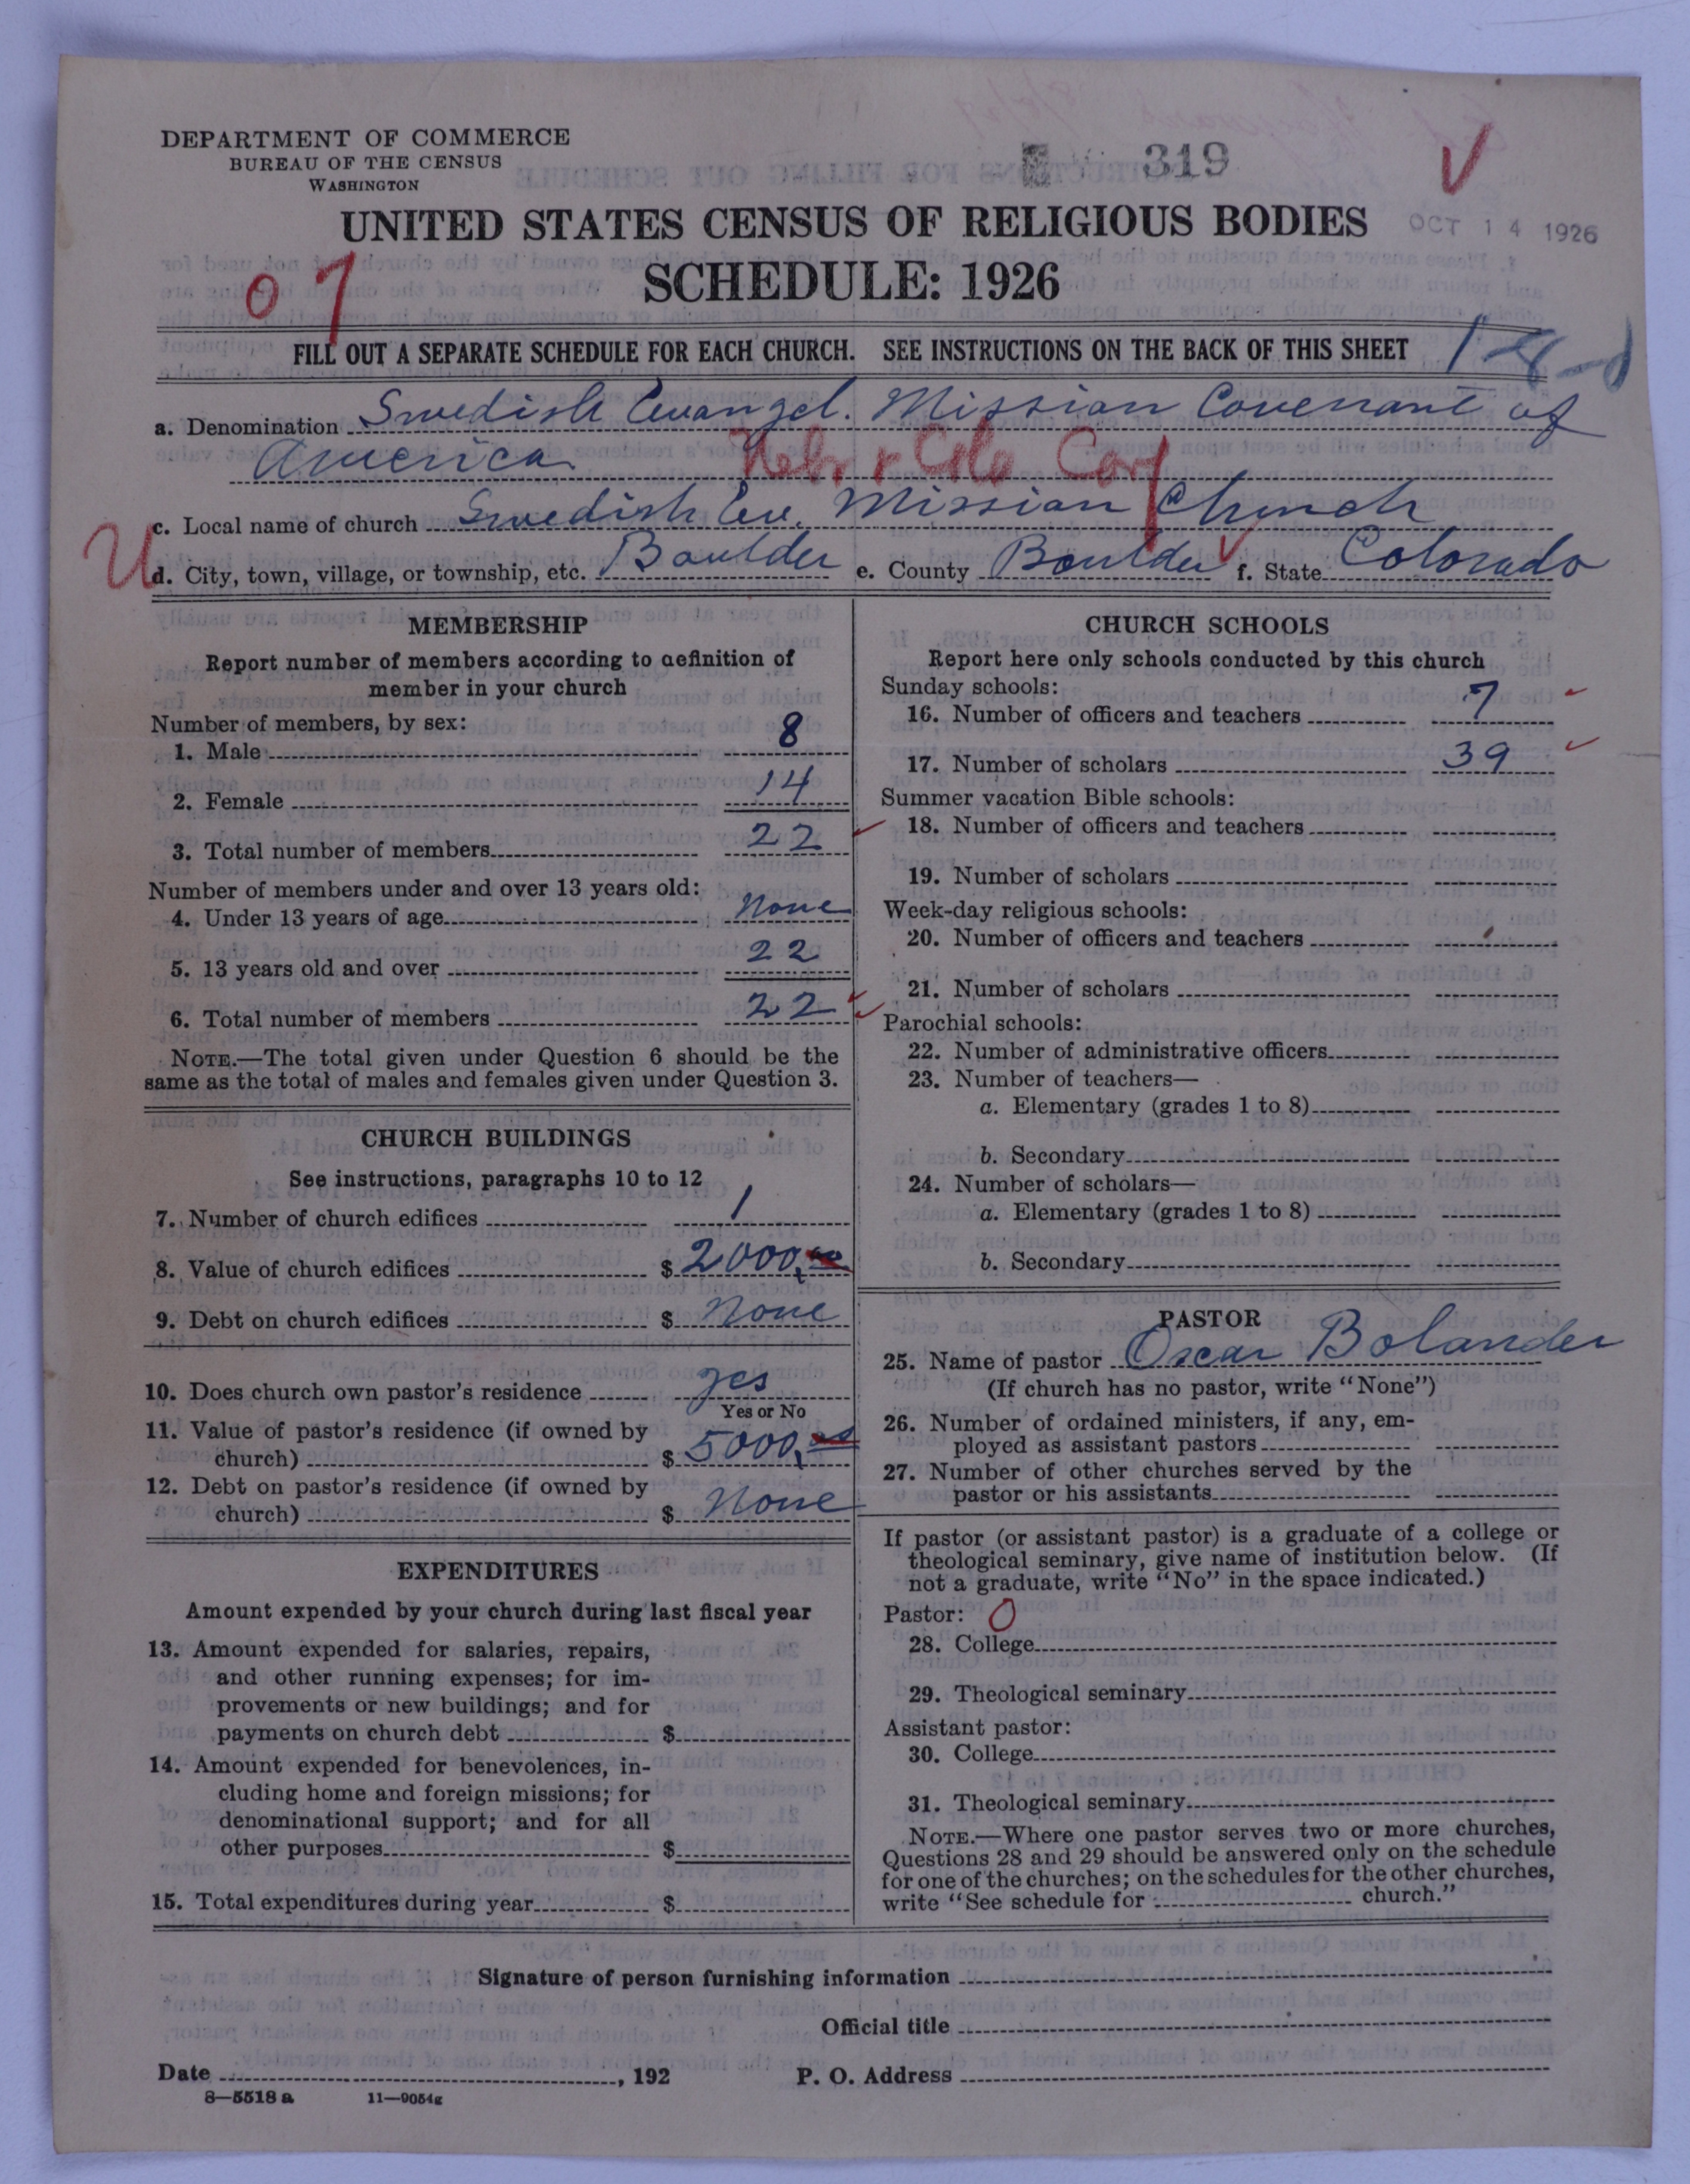 DEPARTMENT OF COMMERCE
BUREAU OF THE CENSUS
WASHINGTON
319
UNITED STATES CENSUS OF RELIGIOUS BODIES
OCT 14 1926
SCHEDULE: 1926
07
FILL OUT A SEPARATE SCHEDULE FOR EACH CHURCH. SEE INSTRUCTIONS ON THE BACK OF THIS SHEET
a. Denomination Swedish Evangel. Mission Covenant of
America
Nebr & Colo Conf
c. Local name of church Swedish Ev. Mission Church
U
d. City, town, village, or township, etc. Boulder e. County Boulder f. State Colorado
MEMBERSHIP
Report number of members according to definition of
member in your church
Number of members, by sex:
1. Male 8
2. Female 14
3. Total number of members 22
Number of members under and over 13 years old:
4. Under 13 years of age None
5. 13 years old and over 22
6. Total number of members 22
NOTE.—The total given under Question 6 should be the
same as the total of males and females given under Question 3.
CHURCH BUILDINGS
See instructions, paragraphs 10 to 12
7. Number of church edifices 1
8. Value of church edifices $ 2000.00
9. Debt on church edifices $ None
10. Does church own pastor's residence yes
Yes or No
11. Value of pastor's residence (if owned by
church) $ 5000.00
12. Debt on pastor's residence (if owned by
church) $ None
EXPENDITURES
Amount expended by your church during last fiscal year
13. Amount expended for salaries, repairs,
and other running expenses; for im-
provements or new buildings; and for
payments on church debt $
14. Amount expended for benevolences, in-
cluding home and foreign missions; for
denominational support; and for all
other purposes $
15. Total expenditures during year $
CHURCH SCHOOLS
Report here only schools conducted by this church
Sunday schools:
16. Number of officers and teachers 7
17. Number of scholars 39
Summer vacation Bible schools:
18. Number of officers and teachers
19. Number of scholars
Week-day religious schools:
20. Number of officers and teachers
21. Number of scholars
Parochial schools:
22. Number of administrative officers
23. Number of teachers—
a. Elementary (grades 1 to 8)
b. Secondary
24. Number of scholars—
a. Elementary (grades 1 to 8)
b. Secondary
PASTOR
25. Name of pastor Oscar Bolander
(If church has no pastor, write "None")
26. Number of ordained ministers, if any, em-
ployed as assistant pastors
27. Number of other churches served by the
pastor or his assistants
If pastor (or assistant pastor) is a graduate of a college or
theological seminary, give name of institution below. (If
not a graduate, write "No" in the space indicated.)
Pastor: 0
28. College
29. Theological seminary
Assistant pastor:
30. College
31. Theological seminary
NOTE.—Where one pastor serves two or more churches,
Questions 28 and 29 should be answered only on the schedule
for one of the churches; on the schedules for the other churches,
write "See schedule for church."
Signature of person furnishing information
Official title
Date , 192 P. O. Address
8—5518 a 11—9054g